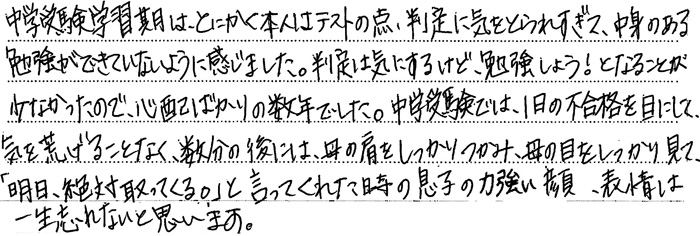 中学受験学習期間は、とにかく本人はテストの点、判定に気をとられすぎて、中身のある
勉強ができていないように感じました。判定は気にするけど、勉強しよう!となることが
少なかったので、心配ばかりの数年でした。中学受験では、1日の不合格を目にして、
気を荒げることなく、数分の後には、母の肩をしっかりつかみ、母の目をしっかり見て、
「明日、絶対取ってくる。」と言ってくれた時の息子の力強い顔、表情は
一生忘れないと思います。